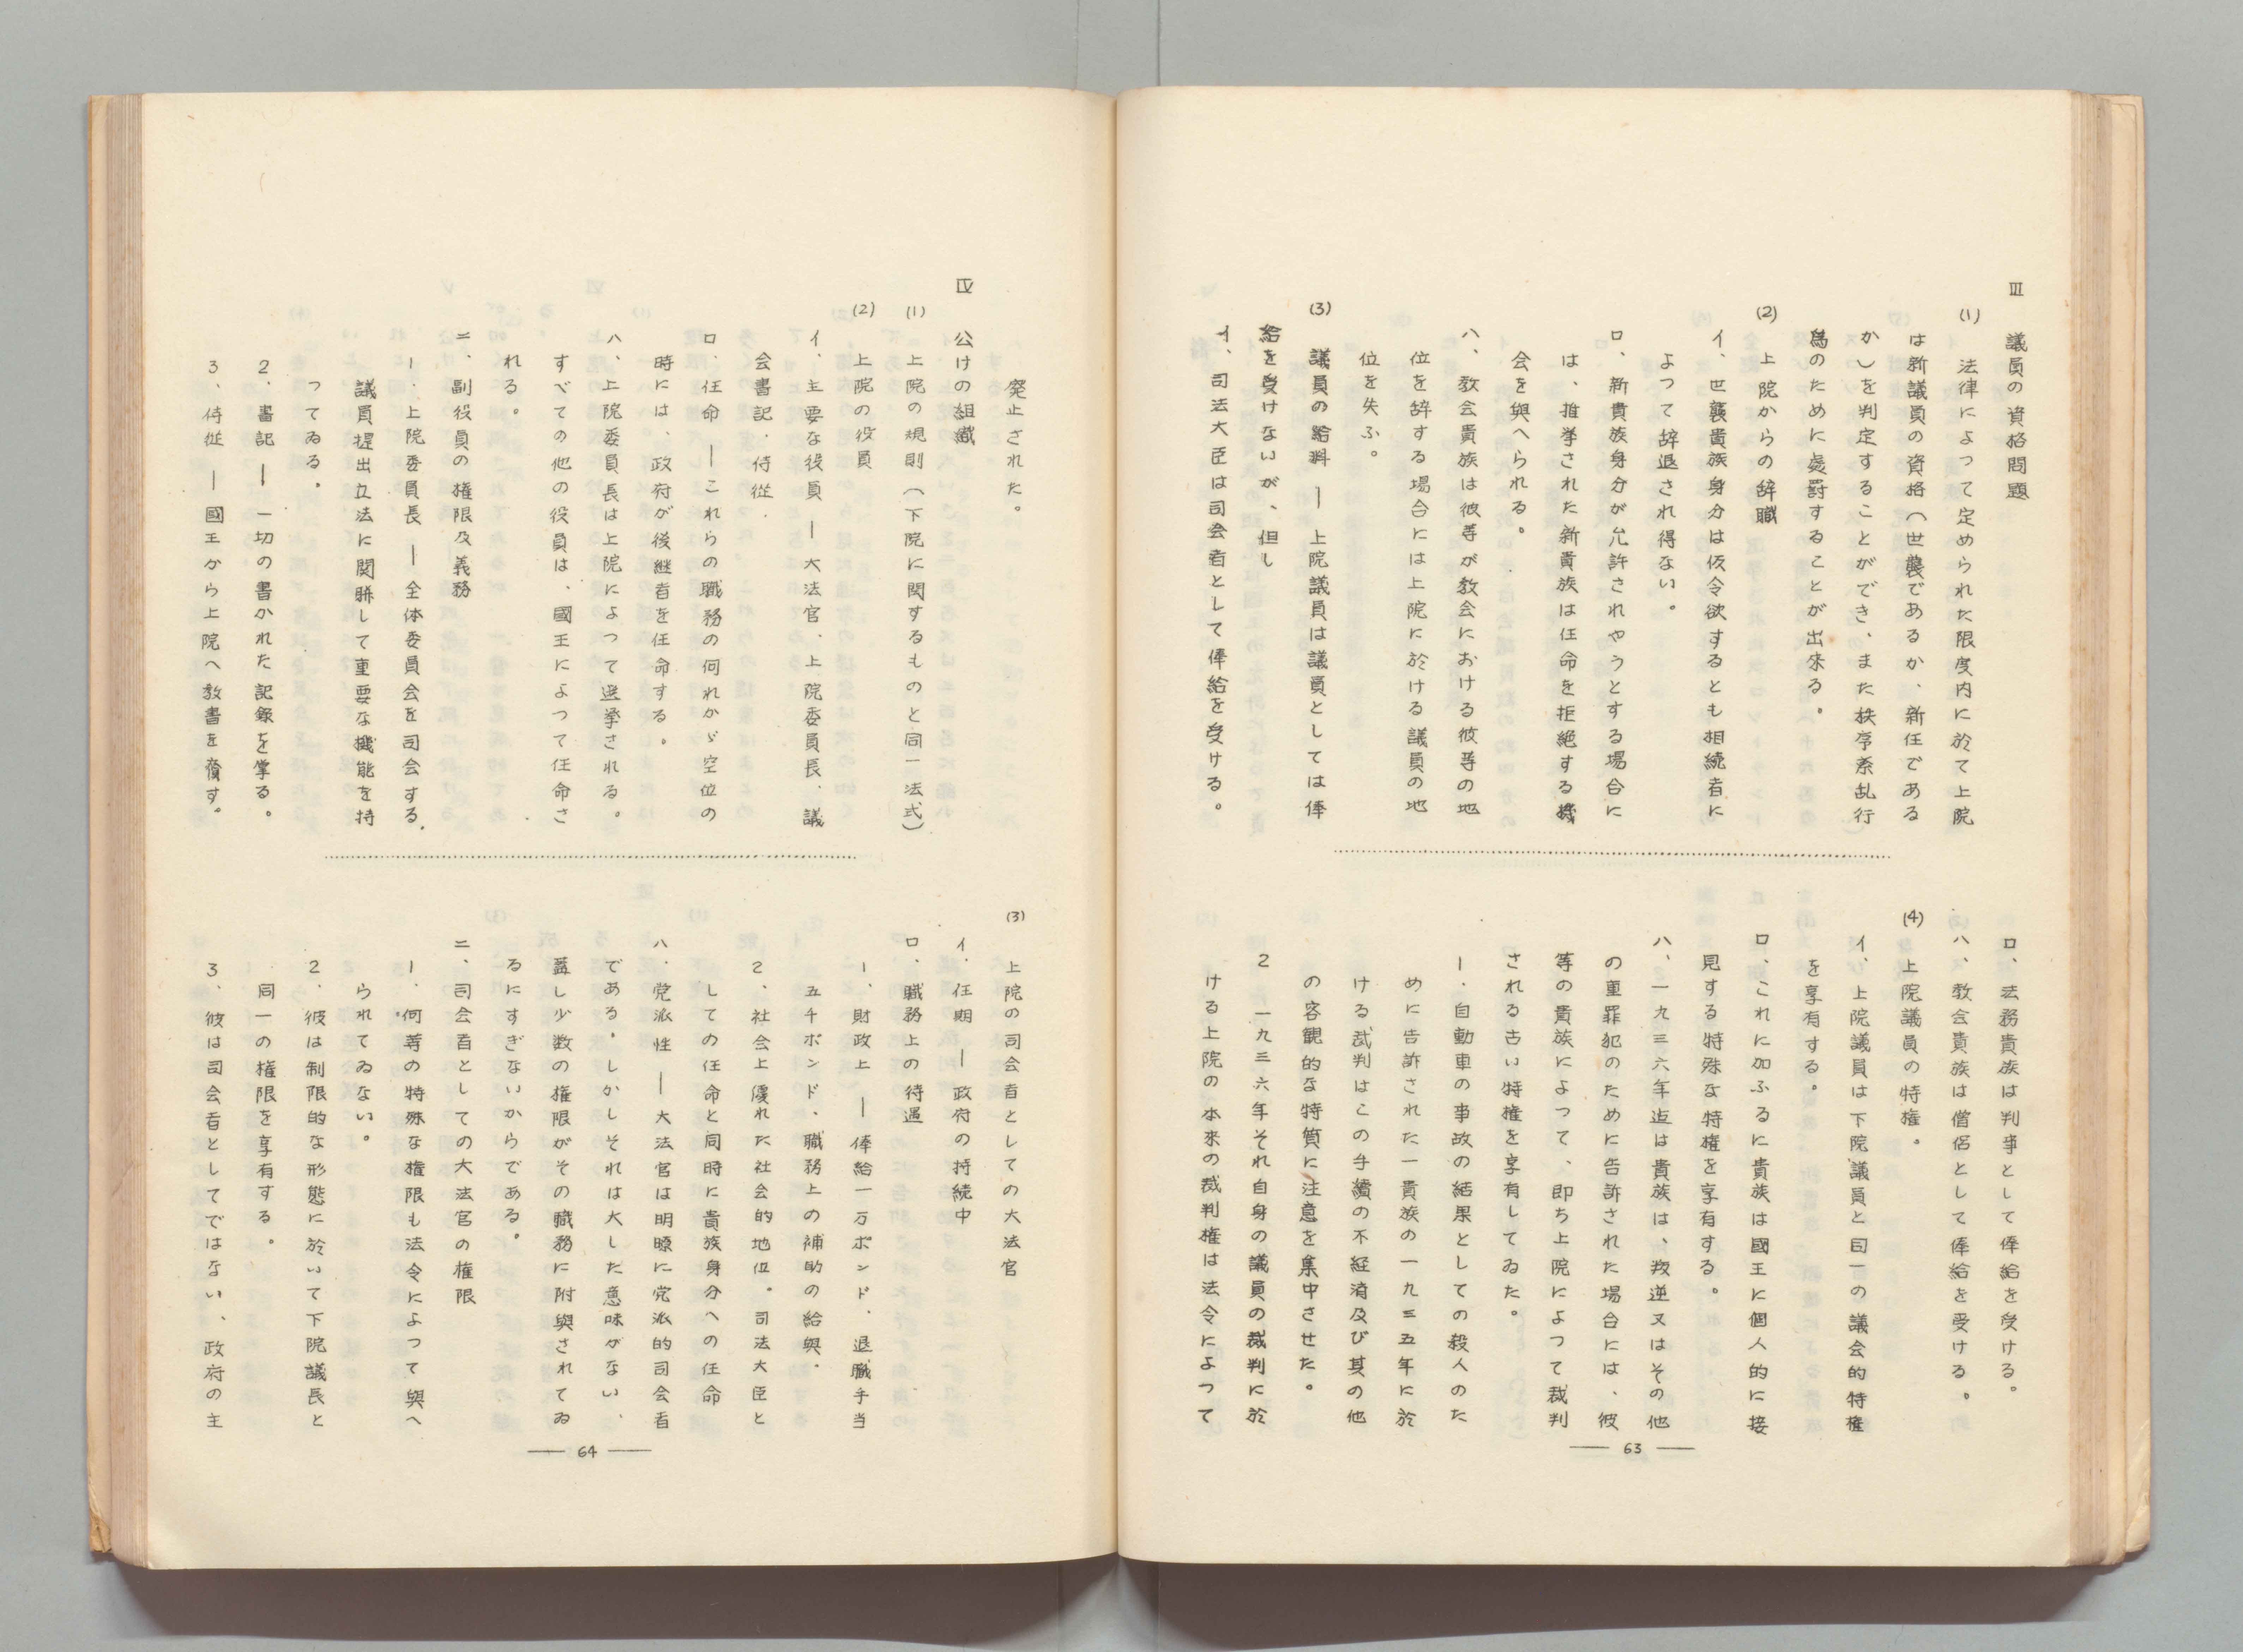 Ⅲ 議員の資格問題
(1) 法律によって定められた限度内に於て上院
は新議員の資格(世襲であるか、新任である
か)を判定することができ、また秩序紊乱行
為のために処罰することが出来る。
(2) 上院からの辞職
イ、世襲貴族身分は仮令欲するとも相続者に
よつて辞退され得ない。
ロ、新貴族身分が允許されやうとする場合に
は、推挙された新貴族は任命を拒絶する機
会を與へられる。
ハ、教会貴族は彼等が教会における彼等の地
位を辞する場合には上院に於ける議員の地
位を失ふ。
(3) 議員の給料 ― 上院議員は議員としては俸
給を受けないが、但し
イ、司法大臣は司会者として俸給を受ける。
ロ、法務貴族は判事として俸給を受ける。
ハ、教会貴族は僧侶として俸給を受ける。
(4) 上院議員の特権。
イ、上院議員は下院議員と同一の議会的特権
を享有する。
ロ、これに加ふるに貴族は國王に個人的に接
見する特殊な特権を享有する。
ハ、一九三六年迄は貴族は、叛逆又はその他
の重罪犯のために告訴された場合には、彼
等の貴族によって、即ち上院によつて裁判
される古い特権を享有してゐた。
1. 自動車の事故の結果としての殺人のた
めに告訴された一貴族の一九三五年に於
ける裁判はこの手續の不経済及び其の他
の客観的な特質に注意を集中させた。
2 一九三六年それ自身の議員の裁判に於
ける上院の本来の裁判権は法令によつて
― 63 ―
廃止された。
Ⅳ 公けの組織
(1) 上院の規則(下院に関するものと同一法式)
(2) 上院の役員
イ、主要な役員 ― 大法官、上院委員長、議
会書記、侍従.
ロ、任命 ― これらの職務の何れかゞ空位の
時には、政府が後継者を任命する。
ハ、上院委員長は上院によつて選挙される。
すべての他の役員は、國王によつて任命さ
れる。
ニ、副役員の権限及義務
1. 上院委員長 ― 全体委員会を司会する.
議員提出立法に関聯して重要な機能を持
つてゐる。
2、書記 ― 一切の書かれた記録を掌る。
3、侍従 ― 國王から上院へ教書を齎す。
(3) 上院の司会者としての大法官
イ. 任期 ― 政府の持続中
ロ、職務上の待遇
1、財政上 ― 俸給一万ポンド、退職手当
五千ポンド、職務上の補助の給與.
2、社会上優れた社会的地位。司法大臣と
しての任命と同時に貴族身分への任命
ハ. 党派性 ― 大法官は明瞭に党派的司会者
である。しかしそれは大した意味がない、
蓋し少数の権限がその職務に附與されてゐ
るにすぎないからである。
ニ、司会者としての大法官の権限
1. 何等の特殊な権限も法令によつて與へ
られてゐない。
2. 彼は制限的な形態に於いて下院議長と
同一の権限を享有する。
3、彼は司会者としてではない、政府の主
― 64 ―